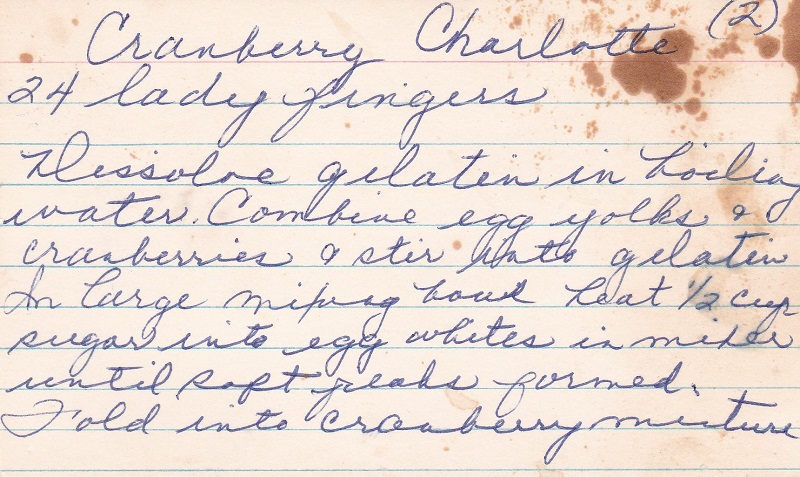 Cranberry Charlotte (2)
24 lady fingers
Dissolve gelatin in boiling
water. Combine egg yolks &
cranberries & stir into gelatin
In large mixing bowl beat 1/2 cup
sugar into egg whites in mixer
until soft peaks formed.
Fold into cranberry mixture